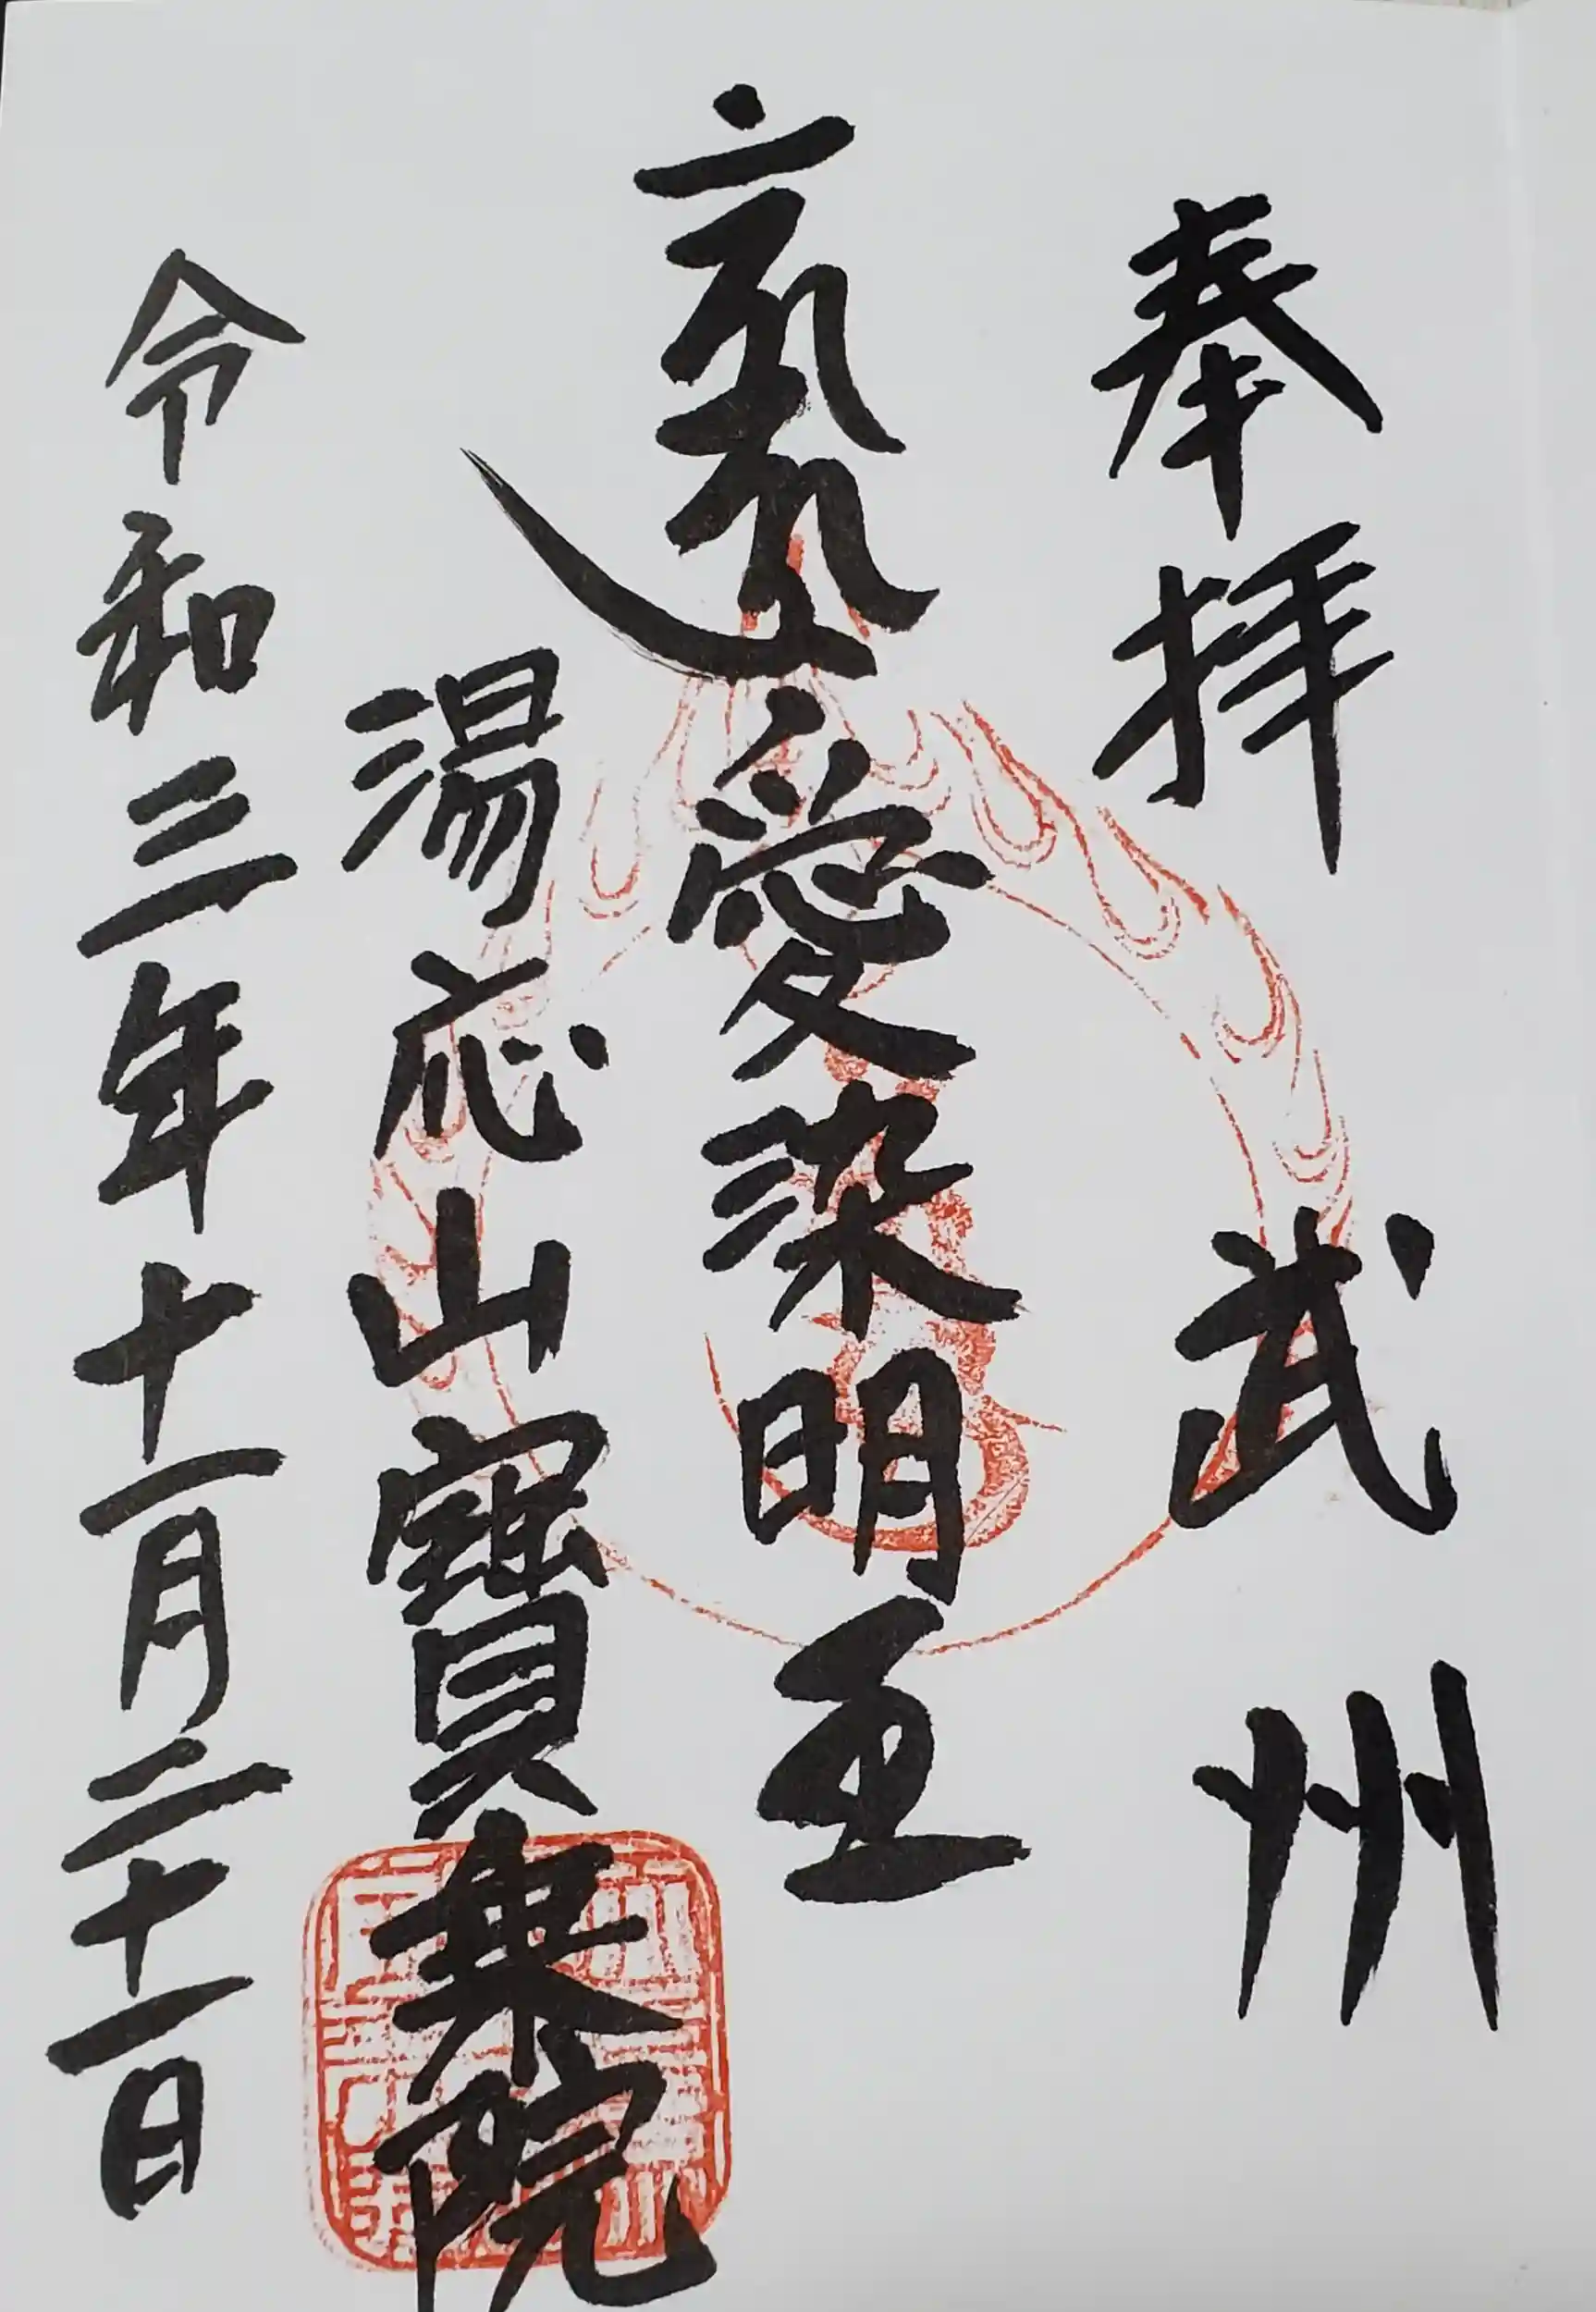 奉拝 武州
愛染明王
湯応山寳乗院
令和三年十一月二十一日